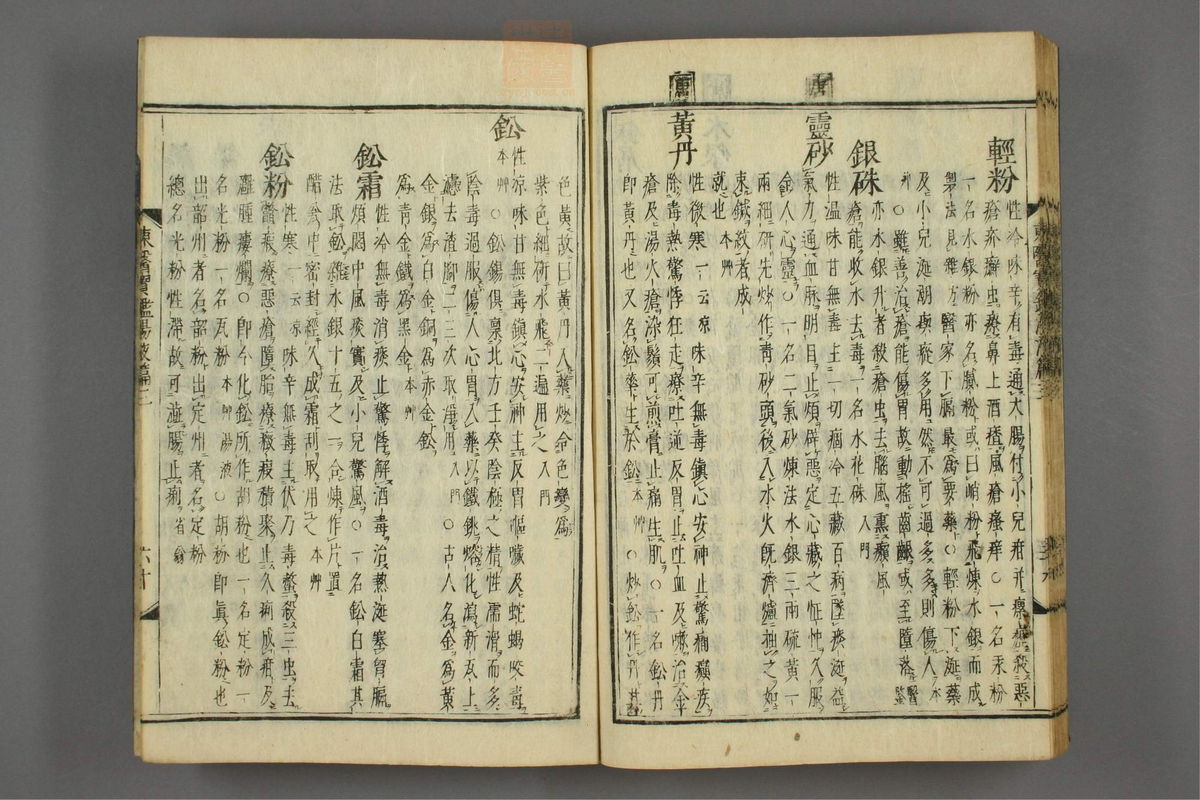 輕粉性冷味辛有毒通大腸付小兒疳并瘰癧殺惡
瘡疥癬虫療鼻上酒皶風瘡瘙痒○一名汞粉
一名水銀粉亦名膩粉或曰峭粉飛煉水銀而成
製法見雜方醫家下膈最爲要藥○輕粉下涎藥
及小兒涎潮瘈瘲多用然不可過多多則傷人本
艸○雖善治瘡能傷胃故動搖齒齦或至墮落醫鑑
銀硃亦水銀升者殺瘡虫去腦風熏癩風
瘡能收水去毒一名水花硃入門
唐靈砂性溫味甘無毒主一切痼冷五藏百病墜痰涎益
氣力通血脉明目止煩辟惡定心藏之怔忡久服
令人心靈○一名二氣砂煉法水銀三兩硫黃一
兩細硏先炒作靑砂頭後入水火旣濟爐抽之如
束鍼紋者成
就也本艸
唐黃丹性微寒一云凉味辛無毒鎭心安神止驚癎癲疾
除毒熱驚悸狂走療吐逆反胃止吐血及嗽治金
瘡及湯火瘡染鬚可煎膏止痛生肌○一名鈆丹
卽黃丹也又名鈆華生於鈆本艸○炒鈆作丹其
色黃故曰黃丹入藥炒令色變爲
紫色細硏水飛二遍用之入門
鈆性凉味甘無毒鎭心安神主反胃嘔噦及蛇蝎咬毒
本艸○鈆錫俱稟北方壬癸陰極之精性濡滑而多
陰毒過服傷人心胃入藥以鐵銚熔化瀉新瓦上
濾去渣脚二三次取淨用入門○古人名金爲黃
金銀爲白金銅爲赤金鈆
爲靑金鐵爲黑金本艸
鈆霜性冷無毒消痰止驚悸解酒毒治熱涎塞胷膈
煩悶中風痰實及小兒驚風○一名鈆白霜其
法取鈆雜水銀十五之一合煉作片置
醋瓮中密封經久成霜刮取用之本艸
鈆粉性寒一云凉味辛無毒主伏尸毒螫殺三虫去
鱉瘕療惡瘡墮胎療癥瘕積聚止久痢成疳及
癰腫瘻爛○卽今化鈆所作胡粉也一名定粉一
名光粉一名瓦粉本艸○湯液○胡粉卽眞鈆粉也
出韶州者名韶粉出定州者名定粉
總名光粉性滯故可澁腸止痢省翁
東醫寶鑑湯液篇三
六十